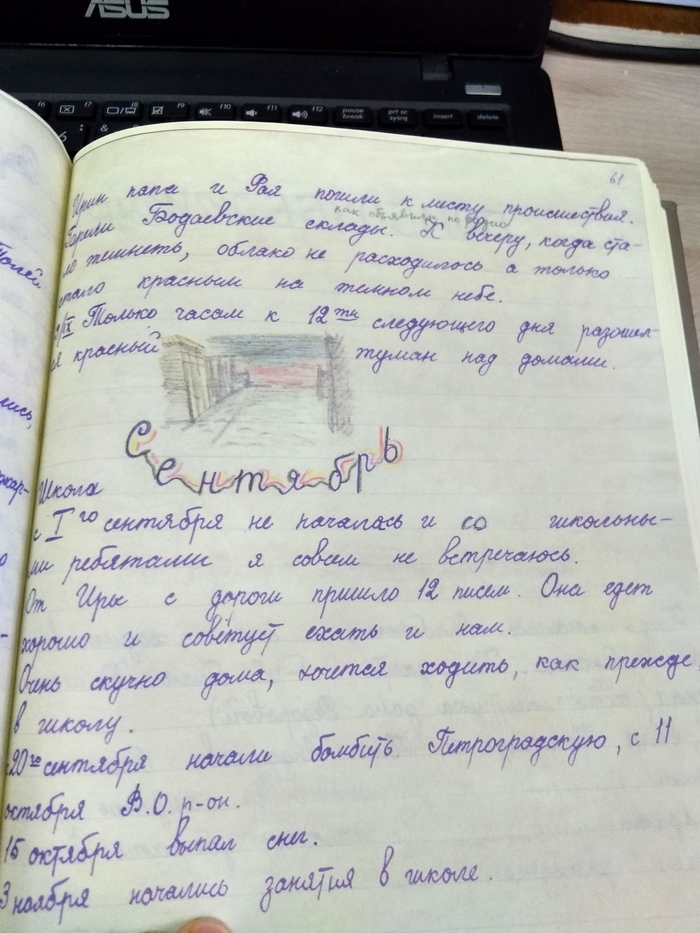 ASUS
f6 f7 f8 f9 f10 f11 f12 pause break prt sc sysrq insert delete
6 &
61
Ирин папа и Рая пошли к месту происшествия.
как объявили по радио
Горели Бодаевские склады. К вечеру, когда ста-
ло темнеть, облако не расходилось а только
стало красным на темном небе.
/IX Только часам к 12ти следующего дня разошел-
ся красный туман над домами.
Сентябрь
Школа
с Iго сентября не началась и со школьны-
ми ребятами я совсем не встречаюсь.
От Иры с дороги пришло 12 писем. Она едет
хорошо и советует ехать и нам.
Очень скучно дома, хочется ходить, как прежде,
в школу.
20го сентября начали бомбить Петроградскую, с 11
октября В.О. р-он.
15 октября выпал снег.
3 ноября начались занятия в школе.